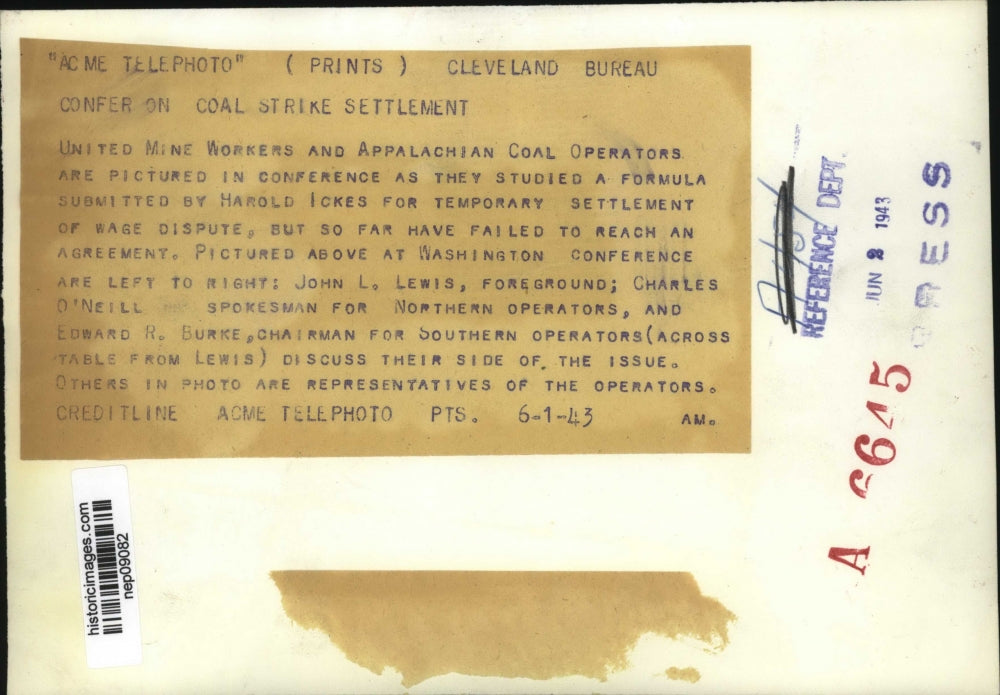 "ACME TELEPHOTO" ( PRINTS ) CLEVELAND BUREAU
CONFER ON COAL STRIKE SETTLEMENT
UNITED MINE WORKERS AND APPALACHIAN COAL OPERATORS
ARE PICTURED IN CONFERENCE AS THEY STUDIED A FORMULA
SUBMITTED BY HAROLD ICKES FOR TEMPORARY SETTLEMENT
OF WAGE DISPUTE, BUT SO FAR HAVE FAILED TO REACH AN
AGREEMENT. PICTURED ABOVE AT WASHINGTON CONFERENCE
ARE LEFT TO RIGHT: JOHN L. LEWIS, FOREGROUND; CHARLES
O'NEILL SPOKESMAN FOR NORTHERN OPERATORS, AND
EDWARD R. BURKE, CHAIRMAN FOR SOUTHERN OPERATORS(ACROSS
TABLE FROM LEWIS) DISCUSS THEIR SIDE OF THE ISSUE.
OTHERS IN PHOTO ARE REPRESENTATIVES OF THE OPERATORS.
CREDITLINE ACME TELEPHOTO PTS. 6-1-43 AM.
REFERENCE DEPT.
JUN 8 1943
PRESS
A 6645
historicimages.com
nep09082